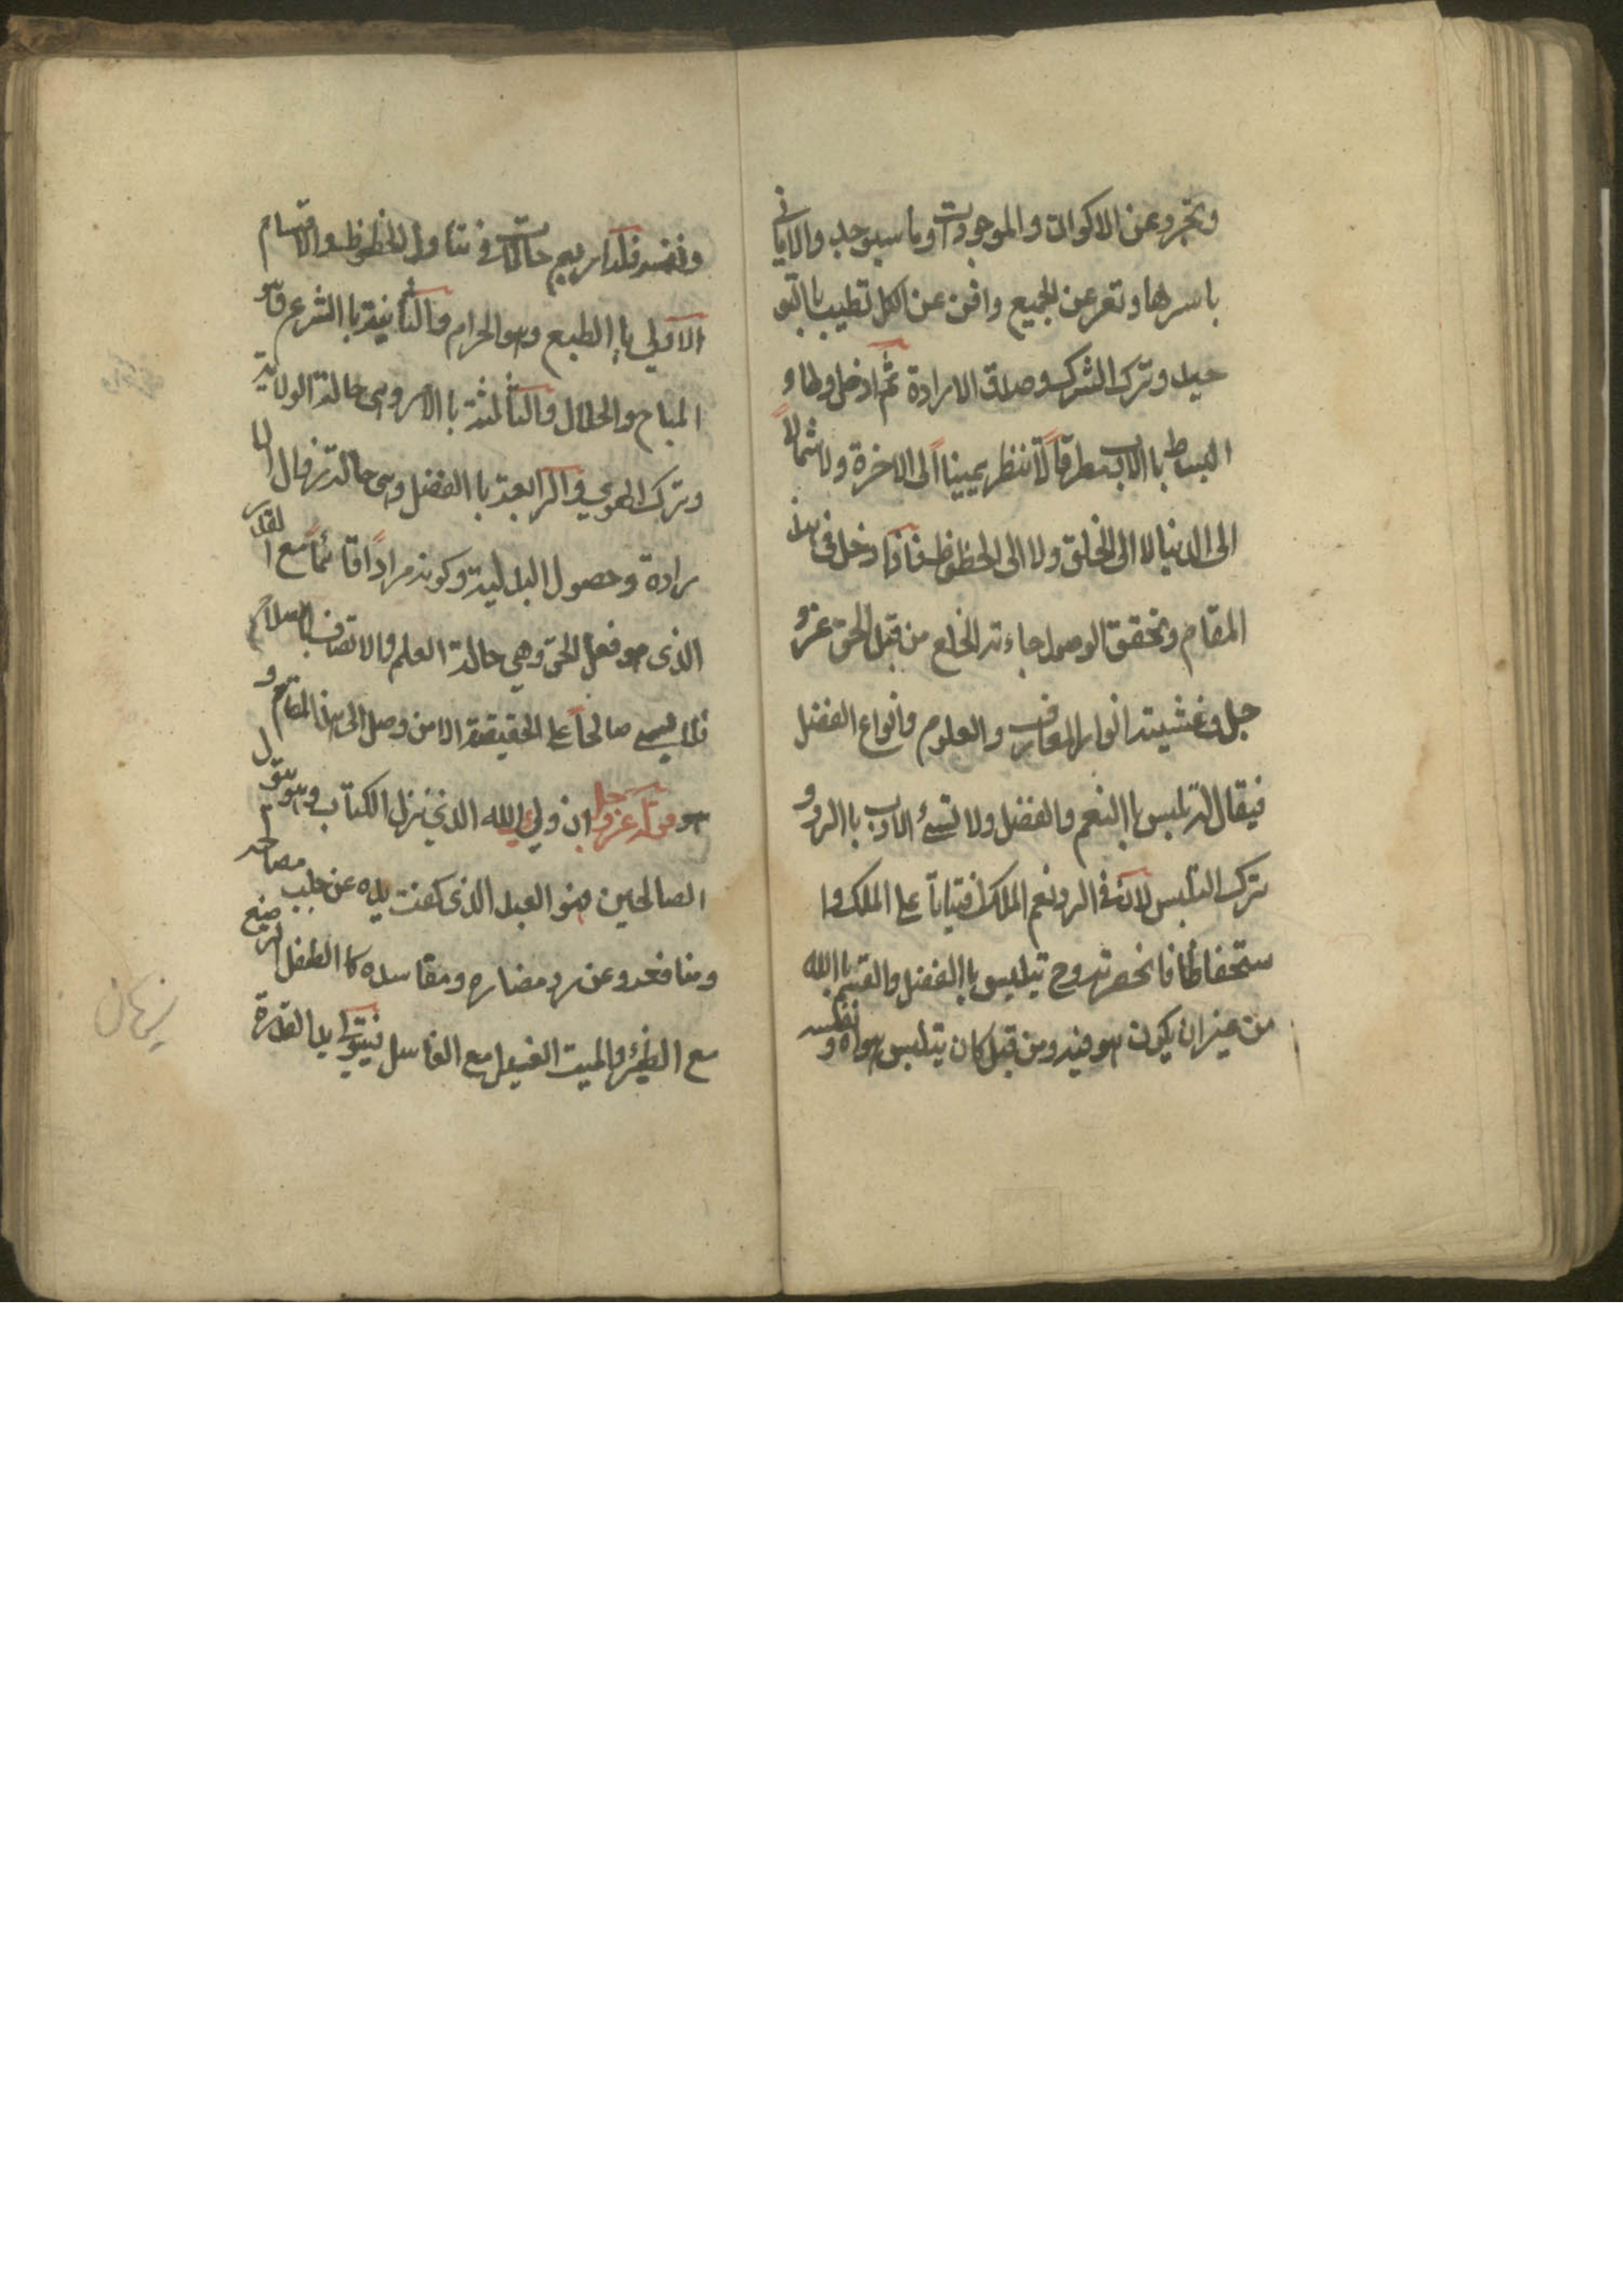 وتجرد عن الاكوان والموجودات وما سيوجد والاماني
باسرها وتعر عن الجميع وافن عن الكل تطيب باالتو
حيد وترك الشرك وصدق الارادة ثم ادخل وطاء
البساط باالادب مطرقاً لا تنظر يميناً الى الاخرة ولا شمالاً
الى الدنيا لا الى الخلق ولا الى الحظوظ فاذا دخل فى هذا
المقام وتحقق الوصول جاءته الخلع من قبل الحق عز و
جل وغشيته انوار المعارف والعلوم وانواع الفضل
فيقال له تلبس باالنعم والفضل ولا تسئ الادب باالرد و
ترك التلبس لان فى الرد نعم الملك افتياتا على الملك وا
ستخفافا فا بحضرته وح يتلبس باالفضل والقسم باالله
من غير ان يكون هو فيه ومن قبل كان يتلبس بهواه و نفسه
ونفسه فله اربع حالات فى تناول الحظوظ والاقسام
الاولي باالطبع وهو الحرام والثانية باالشرع وهو
المباح والحلال والثالثة باالامر وهى حالة الولاية
وترك الهوي والرابعة باالفضل وهى حالة زوال الا
رادة وحصول البدلية وكونه مراداً قائماً مع القدر
الذى هو فعل الحق وهي حالة العلم والاتصاف باالصلاح
فلا يسمى صالحاً على الحقيقة الا من وصل الى هذا المقام و
هو قوله عز وجل ان وليي الله الذي نزل الكتاب وهو يتول
الصالحين فهو العبد الذى كفت يده عن جلب مصالحه
ومنافعه وعن رد مضاره ومفاسده كاالطفل الرضيع
مع الظئر والميت الغسيل مع الغاسل فيتولى يد القدرة